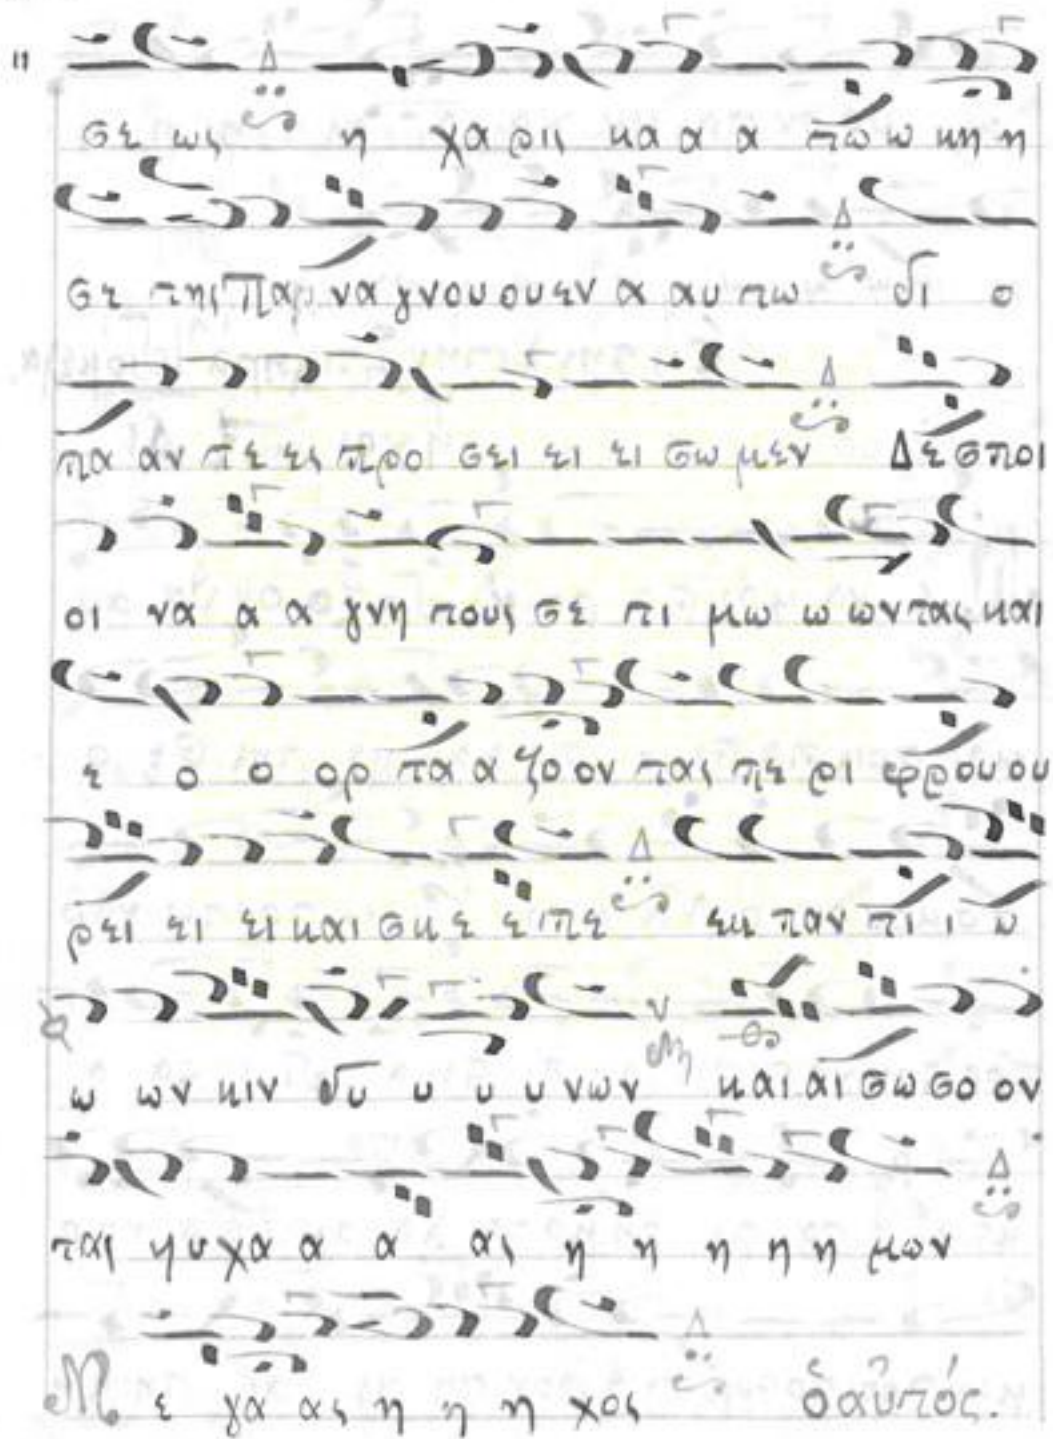 11
σε ως η χαρις κα α α τω ω κη η
σε της Παρ να γνου ου εν α αυ τω δι ο
πα αν τε ες προ σει ει ει σω μεν Δε σποι
οι να α α γνη τους σε τι μω ω ωντας και
ε ο ο ορ τα α ζο ον τας πε ρι φρου ου
ρει ει ει και σκε ε πε εκ παν τι ι ω
ω ων κιν δυ υ υ υ νων και αι σω σο ον
τας ψυ χα α α ας η η η η η μων
Μ ε γα ας η η η χος ὁ αὐτός.